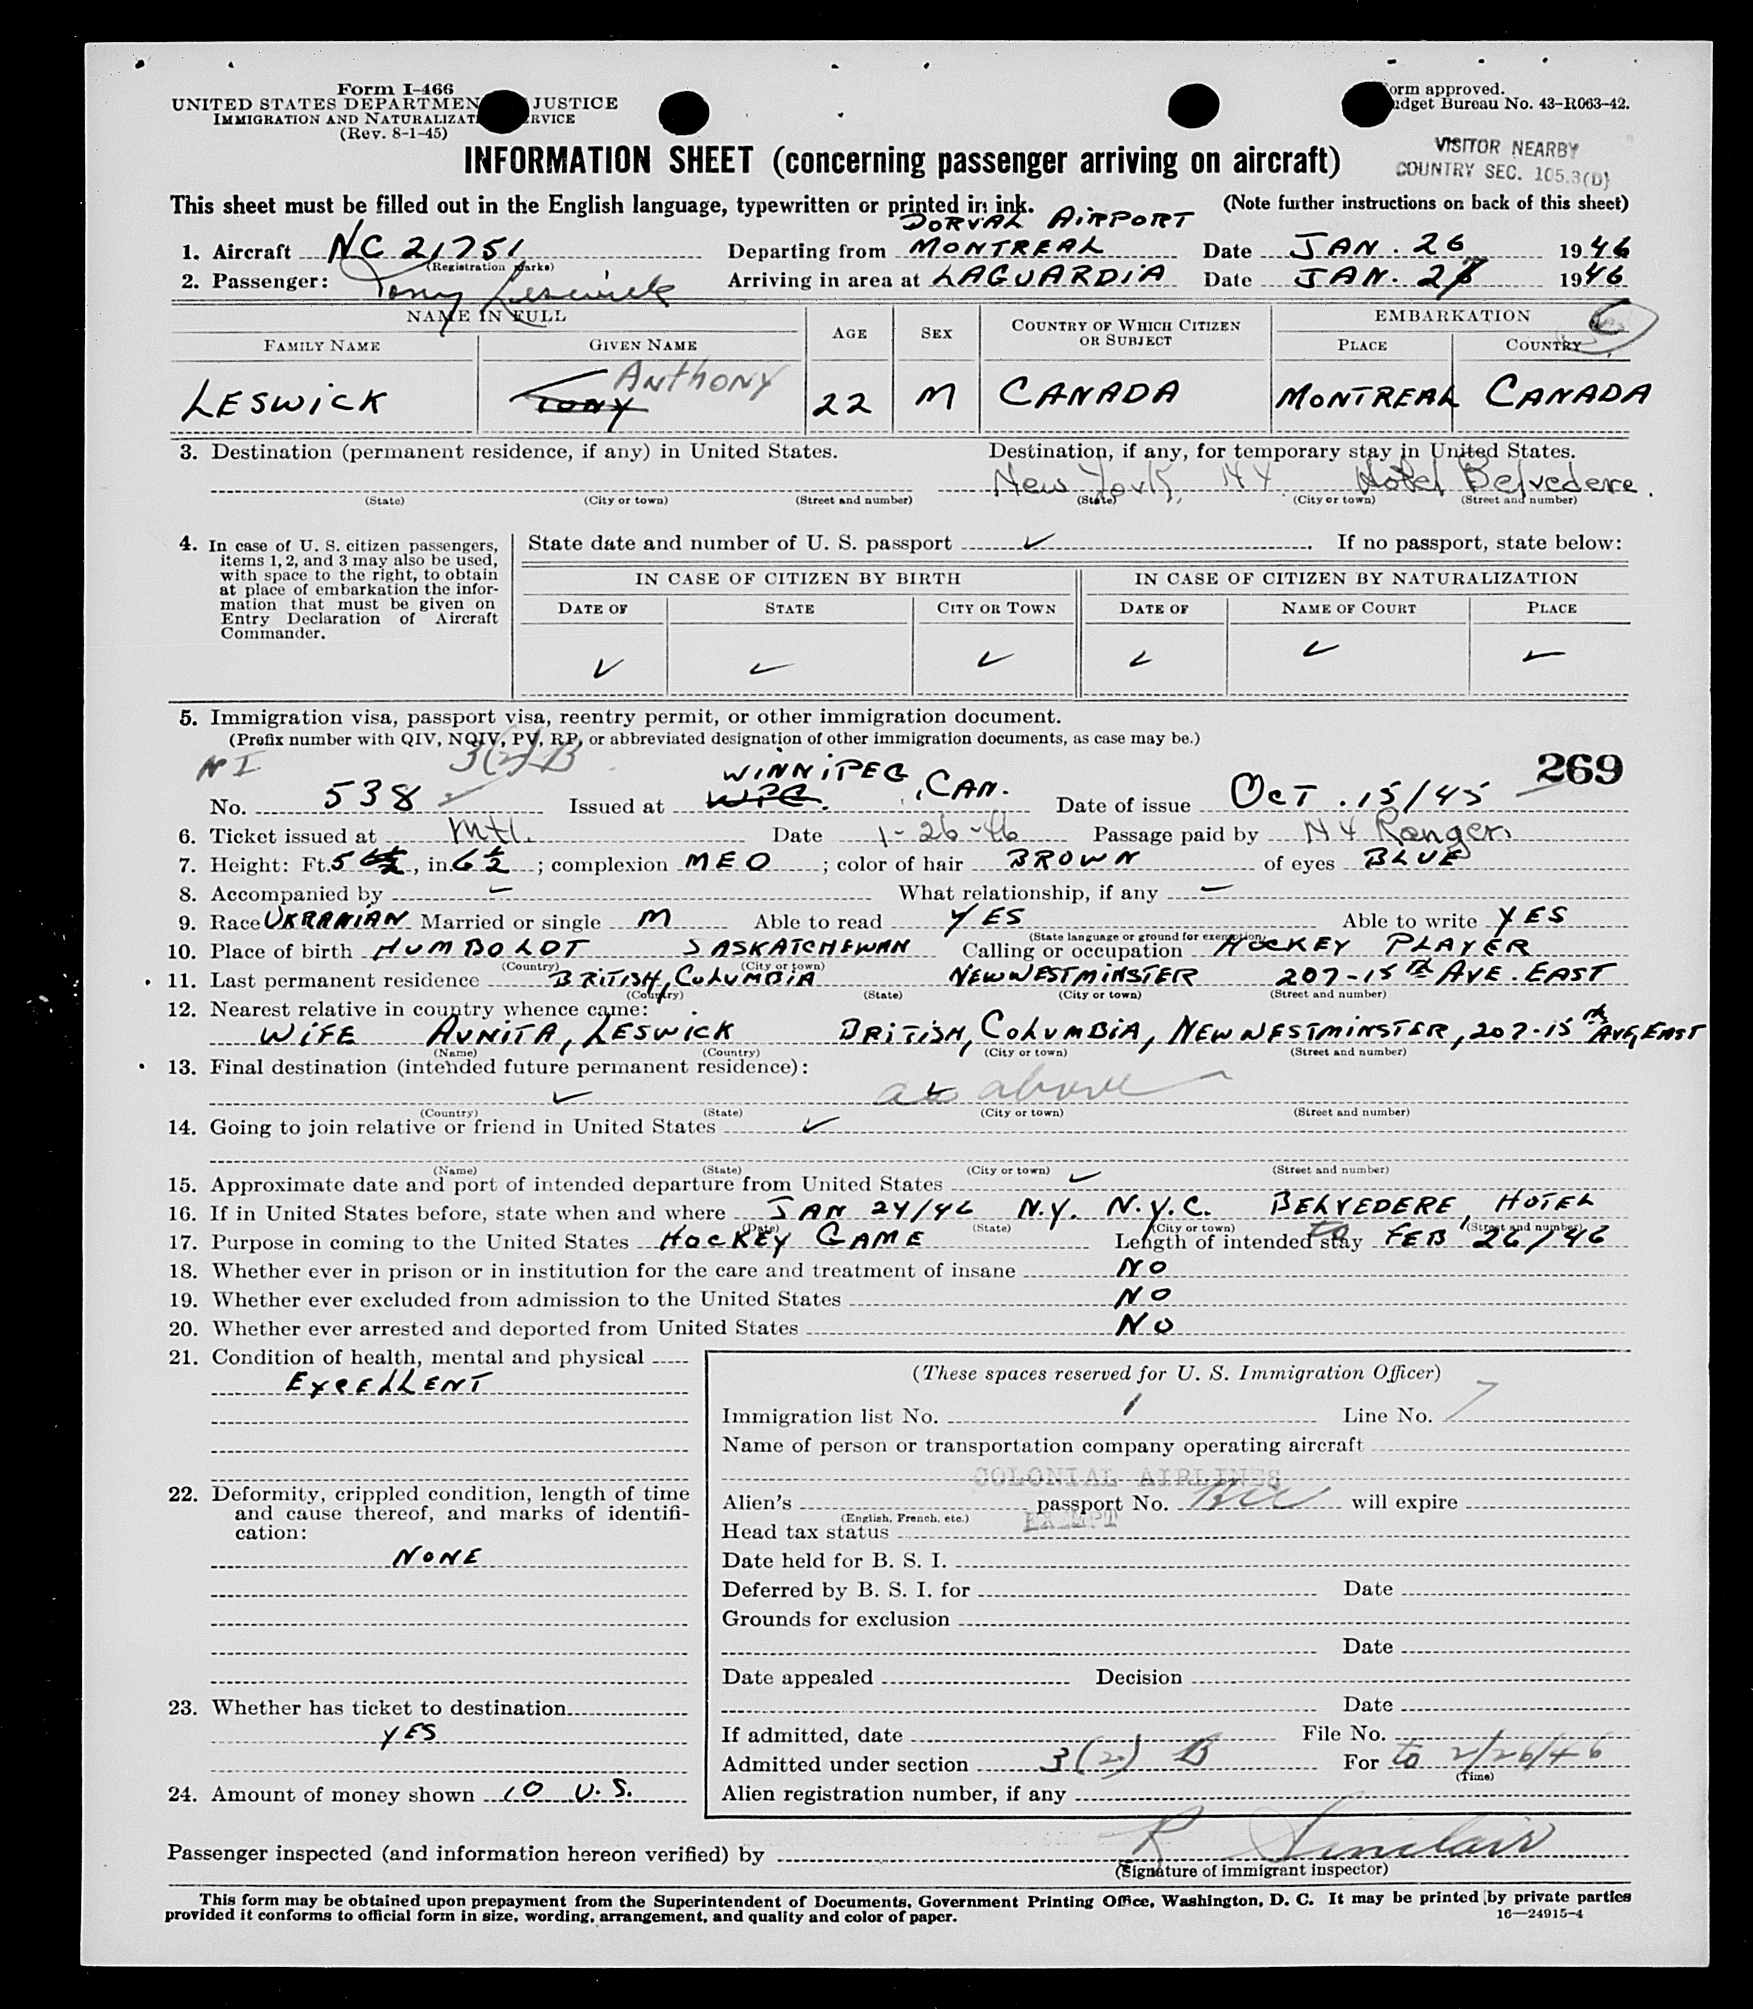 Form I-466
UNITED STATES DEPARTMEN JUSTICE
IMMIGRATION AND NATURALIZAT RVICE
(Rev. 8-1-45)
orm approved.
dget Bureau No. 43-R063-42.
INFORMATION SHEET (concerning passenger arriving on aircraft)
VISITOR NEARBY
COUNTRY SEC. 105.3(D)
This sheet must be filled out in the English language, typewritten or printed in ink. (Note further instructions on back of this sheet)
DORVAL AIRPORT
1. Aircraft NC 21751 Departing from MONTREAL Date JAN. 26 1946
(Registration marks)
2. Passenger: Tony Leswick Arriving in area at LAGUARDIA Date JAN. 26 1946
NAME IN FULL AGE SEX COUNTRY OF WHICH CITIZEN OR SUBJECT EMBARKATION
FAMILY NAME GIVEN NAME PLACE COUNTRY
Anthony
LESWICK TONY 22 M CANADA MONTREAL CANADA
3. Destination (permanent residence, if any) in United States. Destination, if any, for temporary stay in United States.
New York, NY Hotel Belvedere.
(State) (City or town) (Street and number) (State) (City or town) (Street and number)
4. In case of U. S. citizen passengers, items 1, 2, and 3 may also be used, with space to the right, to obtain at place of embarkation the information that must be given on Entry Declaration of Aircraft Commander.
State date and number of U. S. passport ✓. If no passport, state below:
IN CASE OF CITIZEN BY BIRTH IN CASE OF CITIZEN BY NATURALIZATION
DATE OF STATE CITY OR TOWN DATE OF NAME OF COURT PLACE
✓ ✓ ✓ ✓ ✓ ✓
5. Immigration visa, passport visa, reentry permit, or other immigration document.
(Prefix number with QIV, NQIV, PV, RP, or abbreviated designation of other immigration documents, as case may be.)
NI 3(2) B WINNIPEG 269
No. 538 Issued at WPG. , CAN. Date of issue OCT. 15/45
6. Ticket issued at Mtl. Date 1-26-46 Passage paid by NY Rangers
7. Height: Ft. 5, in. 6½; complexion MED; color of hair BROWN of eyes BLUE
8. Accompanied by – What relationship, if any –
9. Race UKRANIAN Married or single M Able to read YES Able to write YES
(State language or ground for exemption)
10. Place of birth HUMBOLDT SASKATCHEWAN Calling or occupation HOCKEY PLAYER
(Country) (City or town)
11. Last permanent residence BRITISH, COLUMBIA NEW WESTMINSTER 207-15TH AVE. EAST
(Country) (State) (City or town) (Street and number)
12. Nearest relative in country whence came:
WIFE AUNITA, LESWICK BRITISH, COLUMBIA, NEW WESTMINSTER, 207-15th AVE, EAST
(Name) (Country) (City or town) (Street and number)
13. Final destination (intended future permanent residence):
✓ as above
(Country) (State) (City or town) (Street and number)
14. Going to join relative or friend in United States ✓
(Name) (State) (City or town) (Street and number)
15. Approximate date and port of intended departure from United States ✓
16. If in United States before, state when and where JAN 24/46 N.Y. N.Y.C. BELVEDERE, HOTEL
(Date) (State) (City or town) (Street and number)
17. Purpose in coming to the United States HOCKEY GAME Length of intended stay to FEB 26/46
18. Whether ever in prison or in institution for the care and treatment of insane NO
19. Whether ever excluded from admission to the United States NO
20. Whether ever arrested and deported from United States NO
21. Condition of health, mental and physical
EXCELLENT
22. Deformity, crippled condition, length of time and cause thereof, and marks of identification:
NONE
23. Whether has ticket to destination
YES
24. Amount of money shown 10 U.S.
(These spaces reserved for U. S. Immigration Officer)
Immigration list No. 1 Line No. 7
Name of person or transportation company operating aircraft
COLONIAL AIRLINES
Alien's passport No. will expire
(English, French, etc.)
Head tax status EXEMPT
Date held for B. S. I.
Deferred by B. S. I. for Date
Grounds for exclusion
Date
Date appealed Decision
Date
If admitted, date File No.
Admitted under section 3(2) B For to 2/26/46
(Time)
Alien registration number, if any
Passenger inspected (and information hereon verified) by R Sinclair
(Signature of immigrant inspector)
This form may be obtained upon prepayment from the Superintendent of Documents, Government Printing Office, Washington, D. C. It may be printed by private parties
provided it conforms to official form in size, wording, arrangement, and quality and color of paper. 16—24915-4